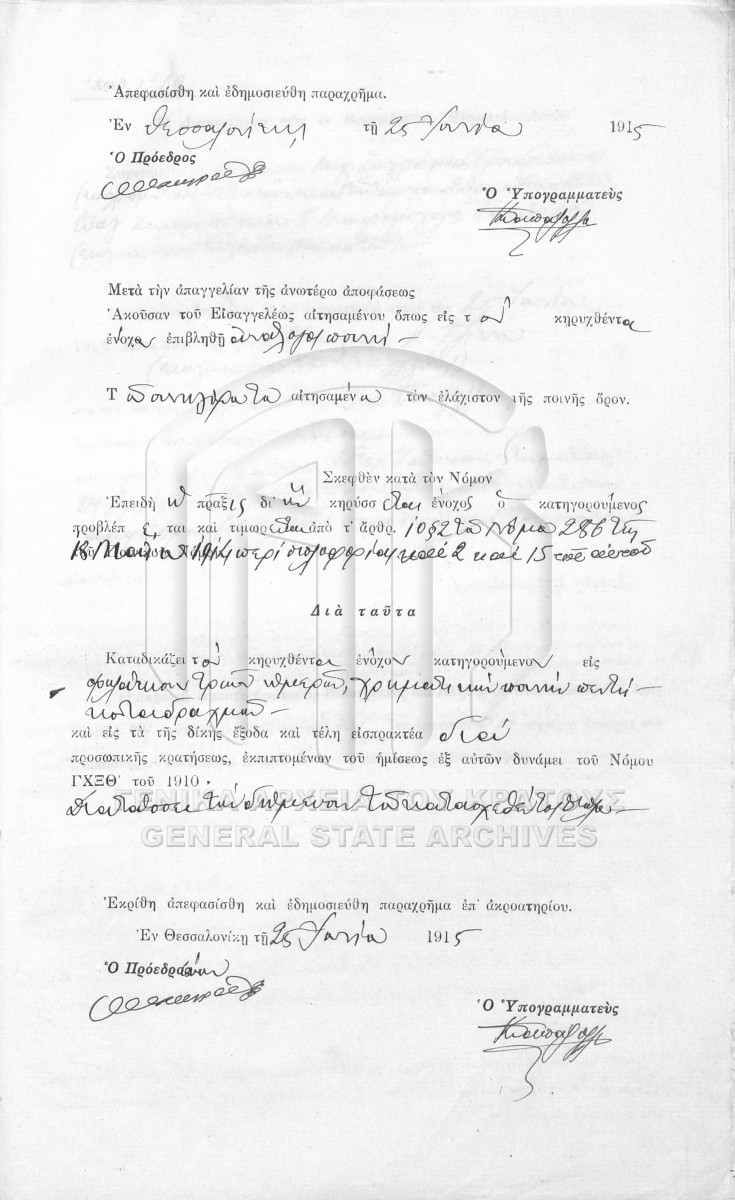 Ἀπεφασίσθη καὶ ἐδημοσιεύθη παραχρῆμα.
Ἐν Θεσσαλονίκῃ τῇ 25 Ἰουνίου 1915
Ὁ Πρόεδρος
Ὁ Ὑπογραμματεὺς
Μετὰ τὴν ἀπαγγελίαν τῆς ἀνωτέρω ἀποφάσεως
Ἀκοῦσαν τοῦ Εἰσαγγελέως αἰτησαμένου ὅπως εἰς τὸν κηρυχθέντα
ἔνοχον ἐπιβληθῇ ἀνάλογος ποινή
Τοῦ συνηγόρου αἰτησαμένου τὸν ἐλάχιστον τῆς ποινῆς ὅρον.
Σκεφθὲν κατὰ τὸν Νόμον
Ἐπειδὴ ἡ πρᾶξις δι' ἣν κηρύσσεται ἔνοχος ὁ κατηγορούμενος
προβλέπεται καὶ τιμωρεῖται ἀπὸ τ' ἄρθρ. 1 καὶ 2 τοῦ Νόμου 286 τῆς
18 1914 περὶ ὁπλοφορίας καὶ 2 καὶ 15
Διὰ ταῦτα
Καταδικάζει τὸν κηρυχθέντα ἔνοχον κατηγορούμενον εἰς
φυλάκισιν τριῶν ἡμερῶν, χρηματικὴν ποινὴν πεντή-
κοντα δραχμῶν
καὶ εἰς τὰ τῆς δίκης ἔξοδα καὶ τέλη εἰσπρακτέα διὰ
προσωπικῆς κρατήσεως, ἐκπιπτομένων τοῦ ἡμίσεως ἐξ αὐτῶν δυνάμει τοῦ Νόμου
ΓΧΞΘ' τοῦ 1910.
ΓΕΝΙΚΑ ΑΡΧΕΙΑ ΤΟΥ ΚΡΑΤΟΥΣ
Διατάσσει τὴν δήμευσιν τοῦ κατασχεθέντος ὅπλου
GENERAL STATE ARCHIVES
Ἐκρίθη ἀπεφασίσθη καὶ ἐδημοσιεύθη παραχρῆμα ἐπ' ἀκροατηρίου.
Ἐν Θεσσαλονίκῃ τῇ 25 Ἰουνίου 1915
Ὁ Πρόεδρος
Ὁ Ὑπογραμματεὺς